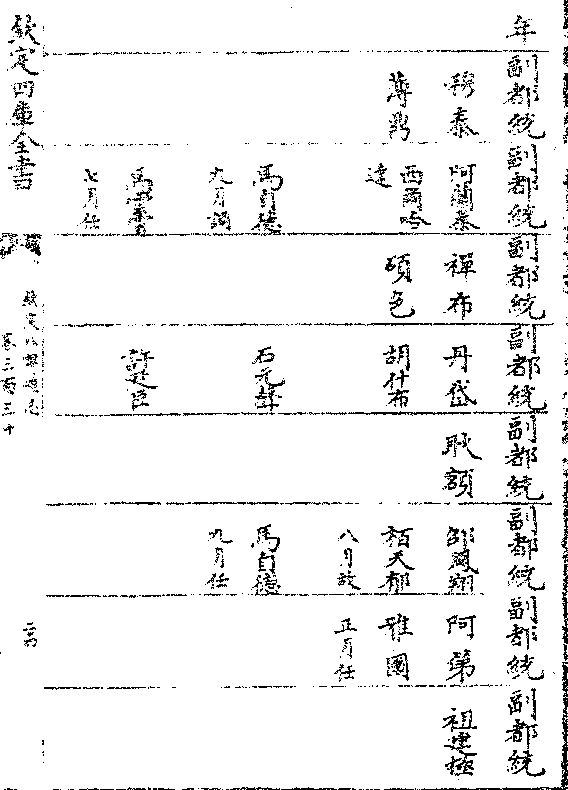 年 副都統 副都統 副都統 副都統 副都統 副都統 副都統 副都統
穆泰 阿蘭泰 禪布 丹岱 耿額 邵鳳翔 阿第 祖建極
薄鼐 西爾哈 碩色 胡什布 栢天郁 雅國
達 八月故 正月任
馬自德 石元聲 馬自德
九月調 九月任
許廷臣
七月任
欽定四庫全書
欽定八旗通志
卷三百三十